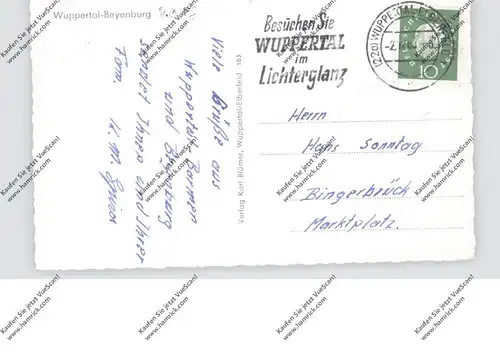 Wuppertal-Beyenburg
Besuchen Sie
WUPPERTAL
im
Lichterglanz
(22a) WUPPERTAL-
10
Viele Grüße aus
Wuppertal Barmen
und Beyenburg
sendet Ihnen und Ihrer
Fam.
Verlag Karl Blümer, Wuppertal-Elberfeld 163
Herrn
Hans Sonntag
Bingerbrück
Marktplatz.
Kaufen Sie jetzt VueScan!
www.hamrick.com